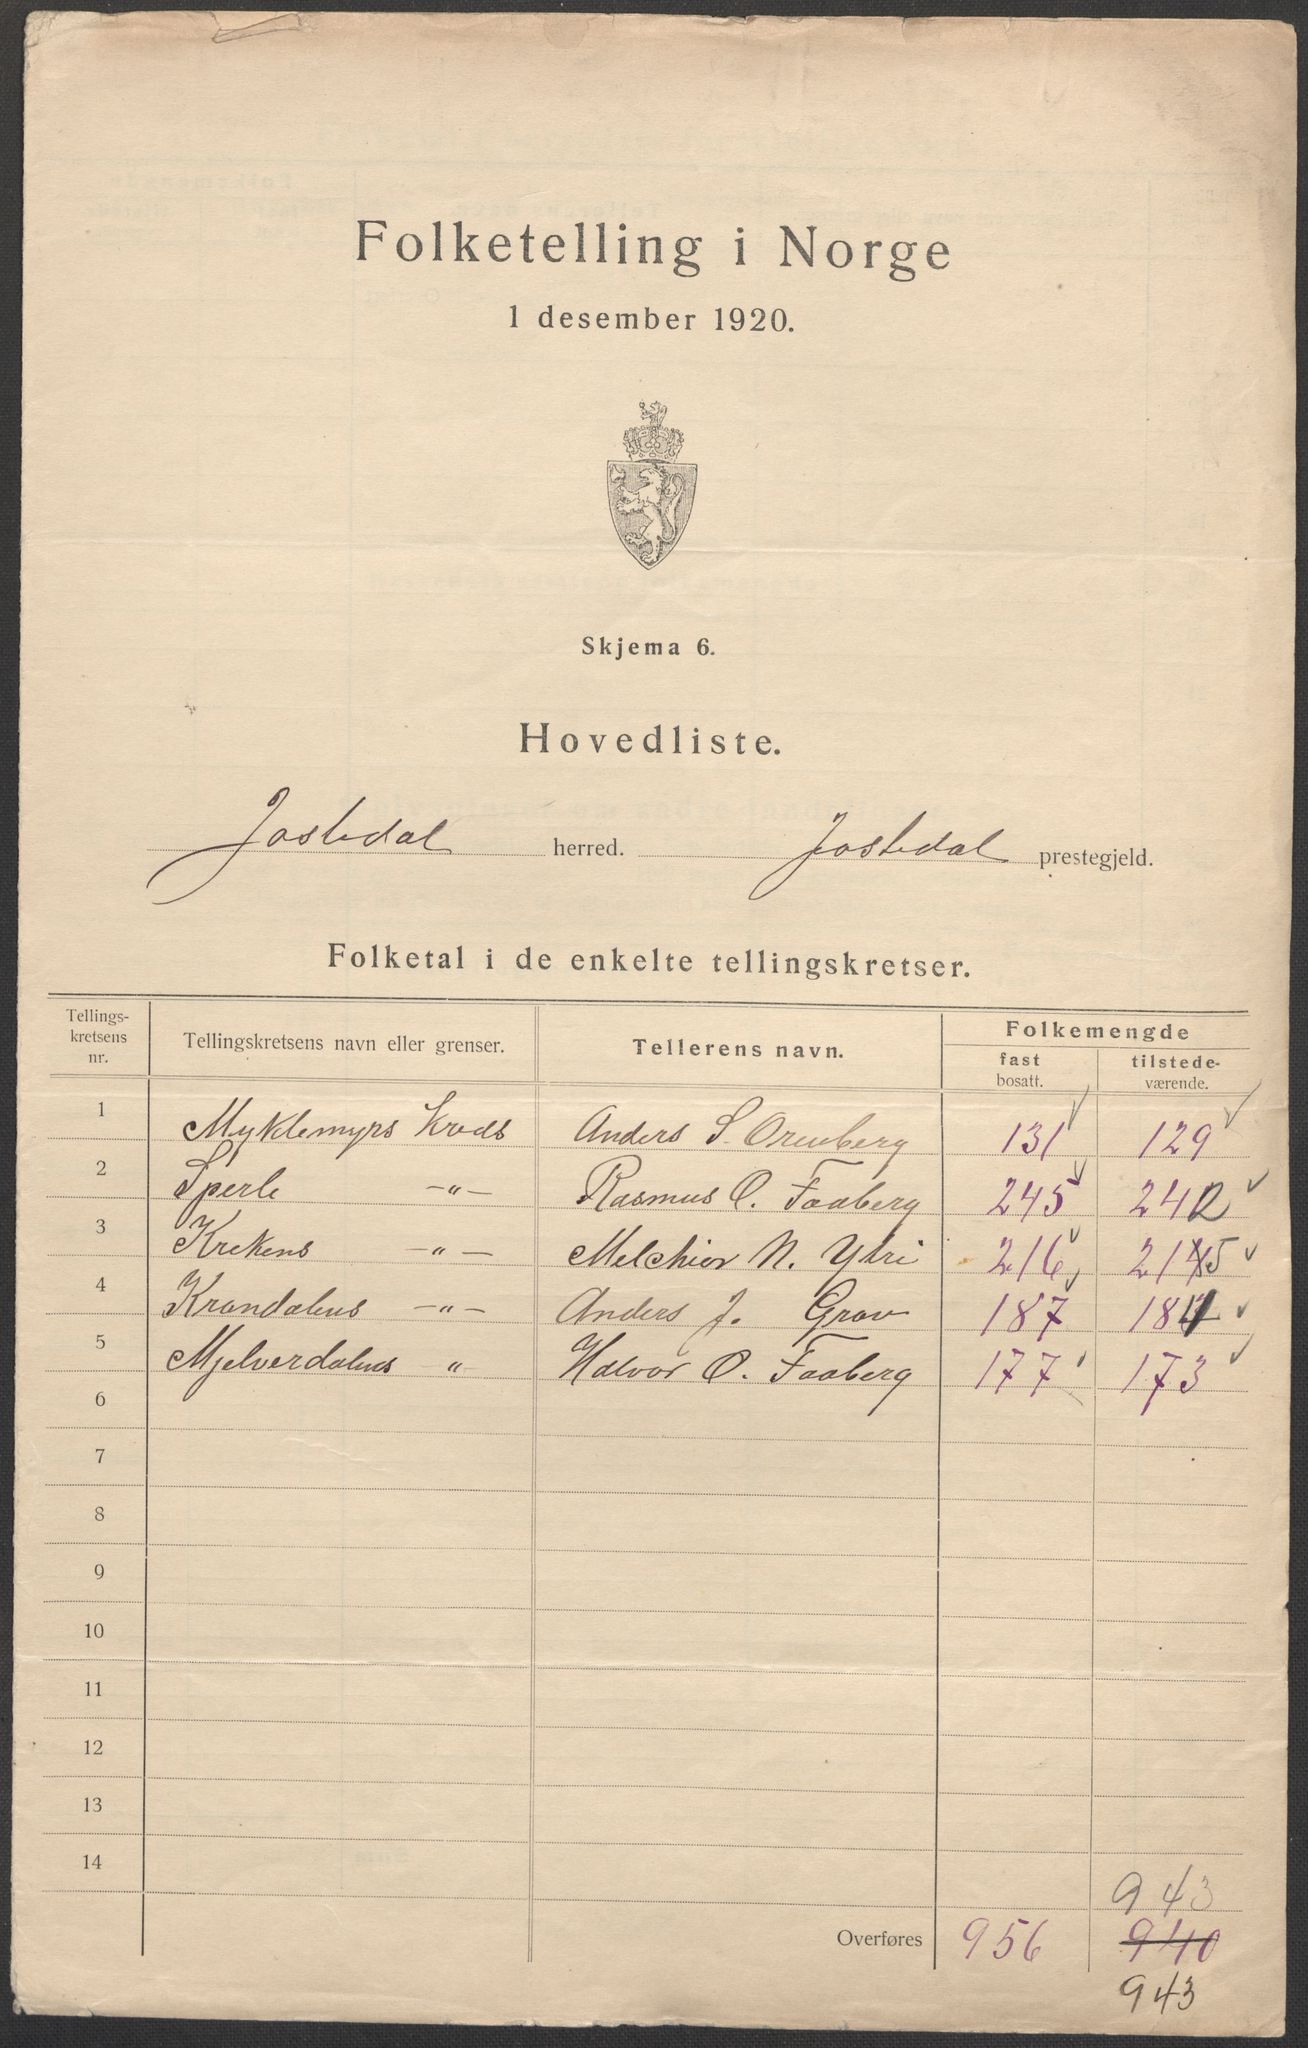 Folketelling i Norge
1 desember 1920.
Skjema 6.
Hovedliste.
Jostedal herred. Jostedal prestegjeld.
Folketal i de enkelte tellingskretser.
Tellings-
kretsens
nr.
Tellingskretsens navn eller grenser.
Tellerens navn.
Folkemengde
fast
bosatt.
tilstede-
værende.
1 Myklemyrs Anders S. 131 129
2 Sperle -"- Rasmus O. Faaberg 245 242
3 Krekens -"- Melchior N. Ytri 216 215
4 Krondalens -"- Anders J. Grov 187 184
5 Mjelverdalens " Halvor O. Faaberg 177 173
6
7
8
9
10
11
12
13
14
943
Overføres 956 940
943